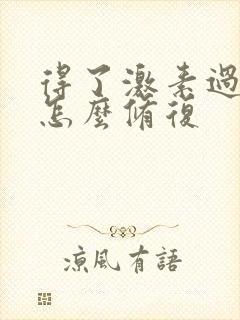 得了激素過
怎麼脩復
凉風有語